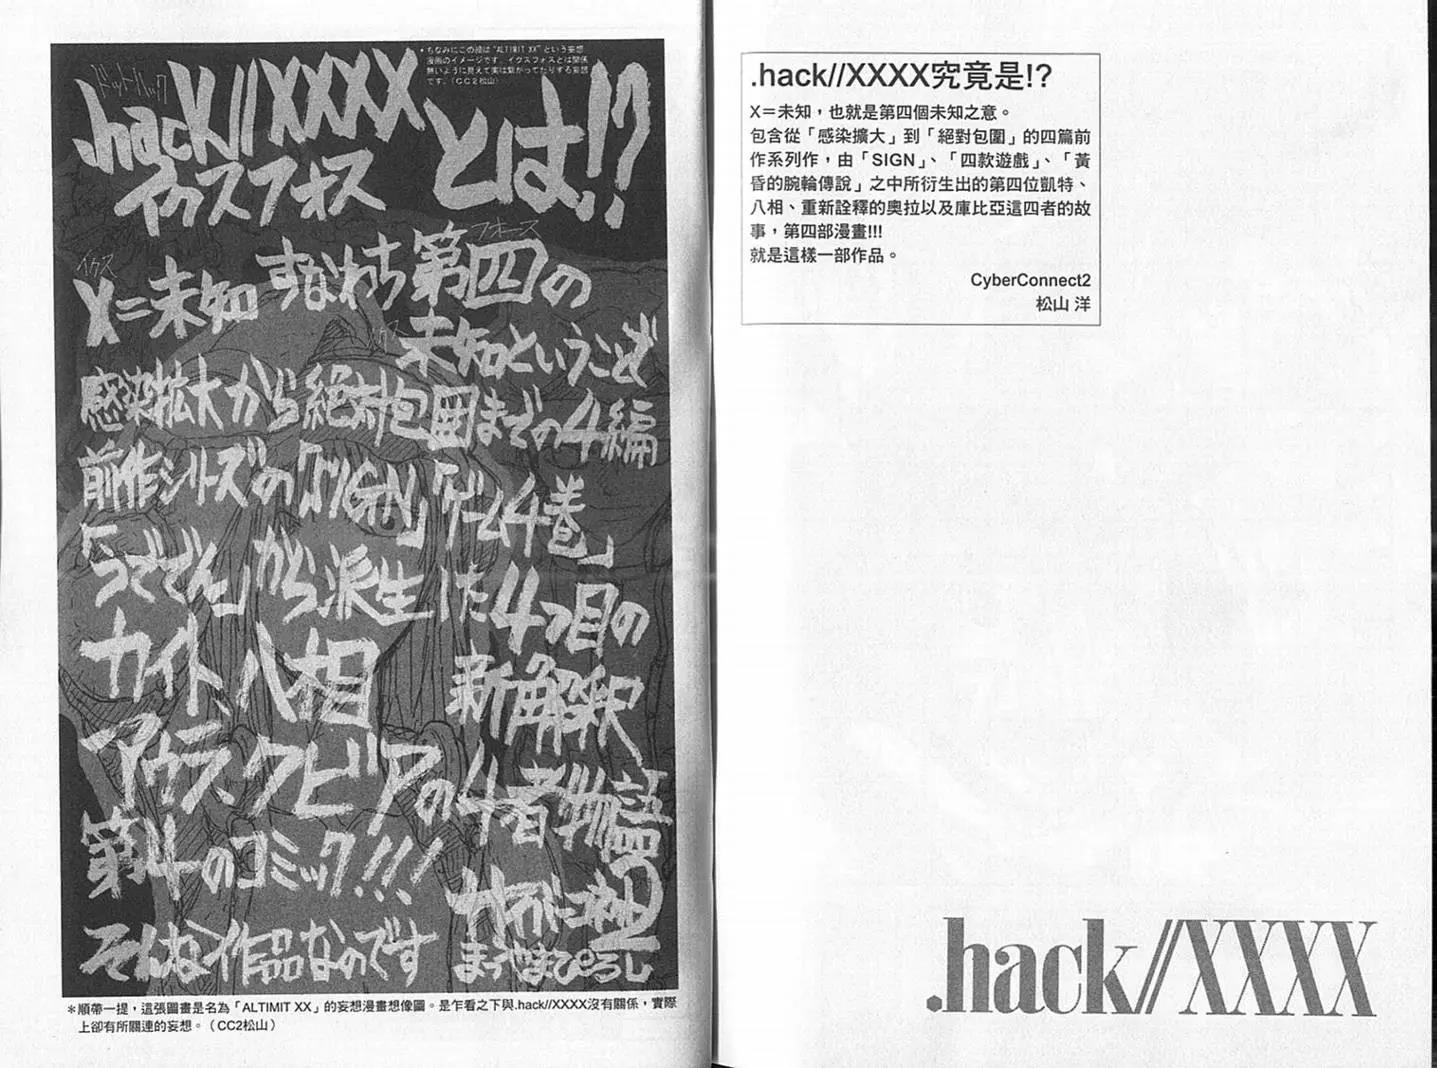 ドットハック
.hack//XXXX
イクスフォス
とは!?
・ちなみにこの絵は“ALTIMIT XX”という妄想
漫画のイメージです。イクスフォスとは関係
無いように見えて実は繋がってたりする妄想
です。(CC2松山)
イクス
X=未知
すなわち
フォース
第四の
イクス
未知ということ
感染拡大から絶対包囲までの4編
前作シリーズの「SIGN」「ゲーム4巻」
「うででん」から派生した4つ目の
カイト、八相
新解釈
アウラ、クビアの4者物語
第4のコミック!!!
そんな作品なのです
まつやまぴろし
*順帶一提,這張圖畫是名為「ALTIMIT XX」的妄想漫畫想像圖。是乍看之下與.hack//XXXX沒有關係,實際
上卻有所關連的妄想。(CC2松山)
.hack//XXXX究竟是!?
X=未知,也就是第四個未知之意。
包含從「感染擴大」到「絕對包圍」的四篇前
作系列作,由「SIGN」、「四款遊戲」、「黃
昏的腕輪傳說」之中所衍生出的第四位凱特、
八相、重新詮釋的奧拉以及庫比亞這四者的故
事,第四部漫畫!!!
就是這樣一部作品。
CyberConnect2
松山 洋
.hack//XXXX